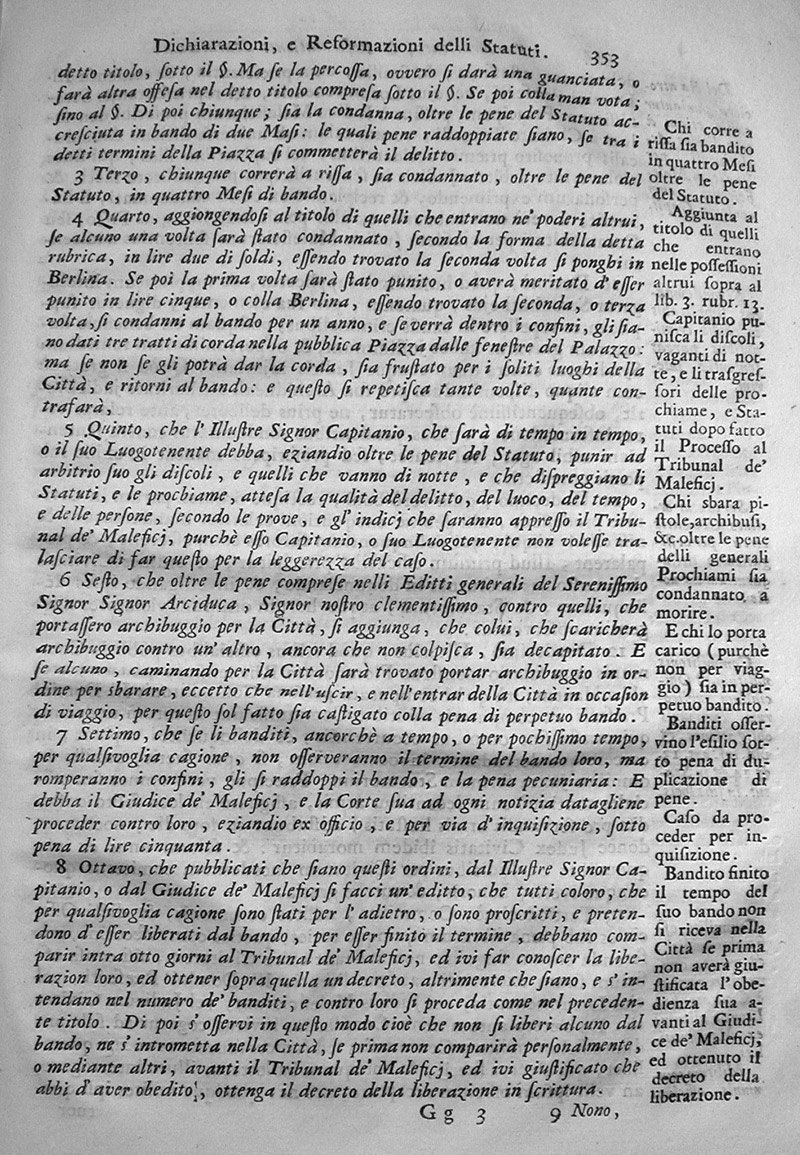 Dichiarazioni, e Reformazioni delli Statuti. 353
detto titolo, ſotto il §. Ma ſe la percoſſa, ovvero ſi darà una guanciata, o
farà altra offeſa nel detto titolo compreſa ſotto il §. Se poi colla man vota;
ſino al §. Di poi chiunque; ſia la condanna, oltre le pene del Statuto ac-
creſciuta in bando di due Meſi: le quali pene raddoppiate ſiano, ſe tra i
detti termini della Piazza ſi commetterà il delitto.
3 Terzo, chiunque correrà a riſſa, ſia condannato, oltre le pene del
Statuto, in quattro Meſi di bando.
4 Quarto, aggiongendoſi al titolo di quelli che entrano ne' poderi altrui,
ſe alcuno una volta ſarà ſtato condannato, ſecondo la forma della detta
rubrica, in lire due di ſoldi, eſſendo trovato la ſeconda volta ſi ponghi in
Berlina. Se poi la prima volta ſarà ſtato punito, o averà meritato d'eſſer
punito in lire cinque, o colla Berlina, eſſendo trovato la ſeconda, o terza
volta, ſi condanni al bando per un anno, e ſe verrà dentro i confini, gli ſia-
no dati tre tratti di corda nella pubblica Piazza dalle feneſtre del Palazzo:
ma ſe non ſe gli potrà dar la corda, ſia fruſtato per i ſoliti luoghi della
Città, e ritorni al bando: e queſto ſi repetiſca tante volte, quante con-
trafarà,
5 Quinto, che l'Illuſtre Signor Capitanio, che ſarà di tempo in tempo,
o il ſuo Luogotenente debba, eziandio oltre le pene del Statuto, punir ad
arbitrio ſuo gli diſcoli, e quelli che vanno di notte, e che diſpreggiano li
Statuti, e le prochiame, atteſa la qualità del delitto, del luoco, del tempo,
e delle perſone, ſecondo le prove, e gl'indicj che ſaranno appreſſo il Tribu-
nal de' Maleficj, purchè eſſo Capitanio, o ſuo Luogotenente non voleſſe tra-
laſciare di far queſto per la leggerezza del caſo.
6 Seſto, che oltre le pene compreſe nelli Editti generali del Sereniſſimo
Signor Signor Arciduca, Signor noſtro clementiſſimo, contro quelli, che
portaſſero archibuggio per la Città, ſi aggiunga, che colui, che ſcaricherà
archibuggio contro un'altro, ancora che non colpiſca, ſia decapitato. E
ſe alcuno, caminando per la Città ſarà trovato portar archibuggio in or-
dine per sbarare, eccetto che nell'uſcir, e nell'entrar della Città in occaſion
di viaggio, per queſto ſol fatto ſia caſtigato colla pena di perpetuo bando.
7 Settimo, che ſe li banditi, ancorchè a tempo, o per pochiſſimo tempo,
per qualſivoglia cagione, non oſſerveranno il termine del bando loro, ma
romperanno i confini, gli ſi raddoppi il bando, e la pena pecuniaria: E
debba il Giudice de' Maleficj, e la Corte ſua ad ogni notizia datagliene
proceder contro loro, eziandio ex officio, e per via d'inquiſizione, ſotto
pena di lire cinquanta.
8 Ottavo, che pubblicati che ſiano queſti ordini, dal Illuſtre Signor Ca-
pitanio, o dal Giudice de' Maleficj ſi facci un'editto, che tutti coloro, che
per qualſivoglia cagione ſono ſtati per l'adietro, o ſono proſcritti, e preten-
dono d'eſſer liberati dal bando, per eſſer finito il termine, debbano com-
parir intra otto giorni al Tribunal de' Maleficj, ed ivi far conoſcer la libe-
razion loro, ed ottener ſopra quella un decreto, altrimente che ſiano, e s'in-
tendano nel numero de' banditi, e contro loro ſi proceda come nel preceden-
te titolo. Di poi s'oſſervi in queſto modo cioè che non ſi liberi alcuno dal
bando, ne s'intrometta nella Città, ſe prima non comparirà perſonalmente,
o mediante altri, avanti il Tribunal de' Maleficj, ed ivi giuſtificato che
abbi d'aver obedito, ottenga il decreto della liberazione in ſcrittura.
G g 3 9 Nono,
Chi corre a
riſſa ſia bandito
in quattro Meſi
oltre le pene
del Statuto.
Aggiunta al
titolo di quelli
che entrano
nelle poſſeſſioni
altrui ſopra al
lib. 3. rubr. 13.
Capitanio pu-
niſca li diſcoli,
vaganti di not-
te, e li trasgreſ-
ſori delle pro-
chiame, e Sta-
tuti dopo fatto
il Proceſſo al
Tribunal de'
Maleficj.
Chi sbara pi-
ſtole, archibuſi,
&c. oltre le pene
delli generali
Prochiami ſia
condannato a
morire.
E chi lo porta
carico (purchè
non per viag-
gio) ſia in per-
petuo bandito.
Banditi oſſer-
vino l'eſilio ſot-
to pena di du-
plicazione di
pene.
Caſo da pro-
ceder per in-
quiſizione.
Bandito finito
il tempo del
ſuo bando non
ſi riceva nella
Città ſe prima
non averà giu-
ſtificata l'obe-
dienza ſua a-
vanti al Giudi-
ce de' Maleficj,
ed ottenuto il
decreto della
liberazione.